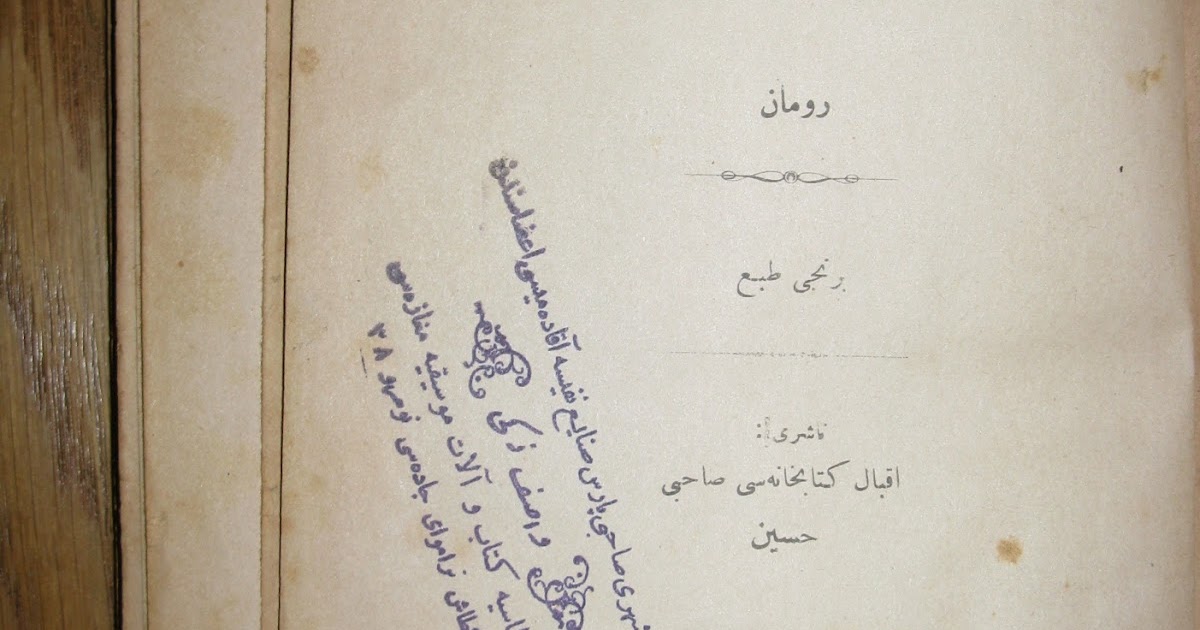 رومان
برنجی طبع
ناشری :
اقبال کتابخانه‌سی صاحبی
حسین
شهری صاحبی پارس صنایع نفیسه آقاده‌میسی اعضاسندن
واصف زکی
کتاب و آلات موسیقیه مغازه‌سی
تراموای جاده‌سی نومرو ٣٨